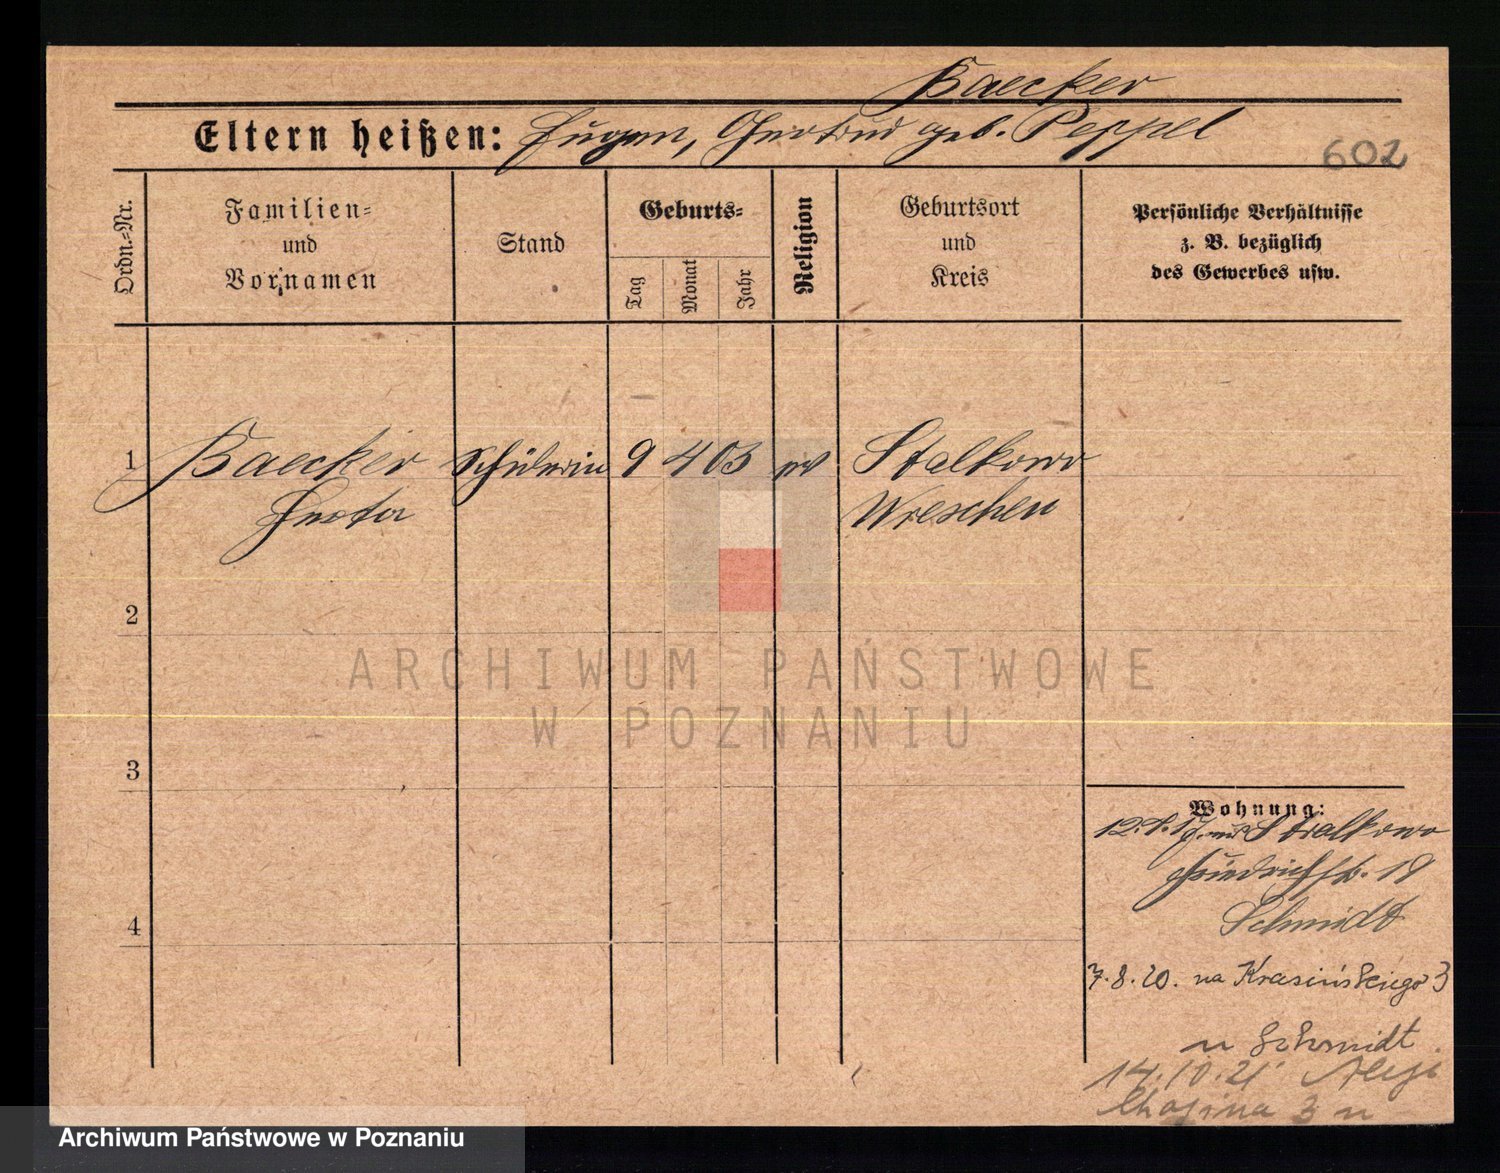 Baecker
Eltern heißen: Eugen, Gertrud geb. Peppel
602
Ordn.=Nr.
Familien=
und
Vornamen
Stand
Geburts=
Tag
Monat
Jahr
Religion
Geburtsort
und
Kreis
Persönliche Verhältnisse
z. B. bezüglich
des Gewerbes usw.
1 Baecker Schülerin 9 4 03 Stalkowo
Wreschen
2
3
4
Wohnung:
Stralkowo
Friedrichstr. 19
Schmidt
7.8.20. na Krasińskiego 3
u Schmidt
14.10.21
3 u
ARCHIWUM PAŃSTWOWE
W POZNANIU
Archiwum Państwowe w Poznaniu